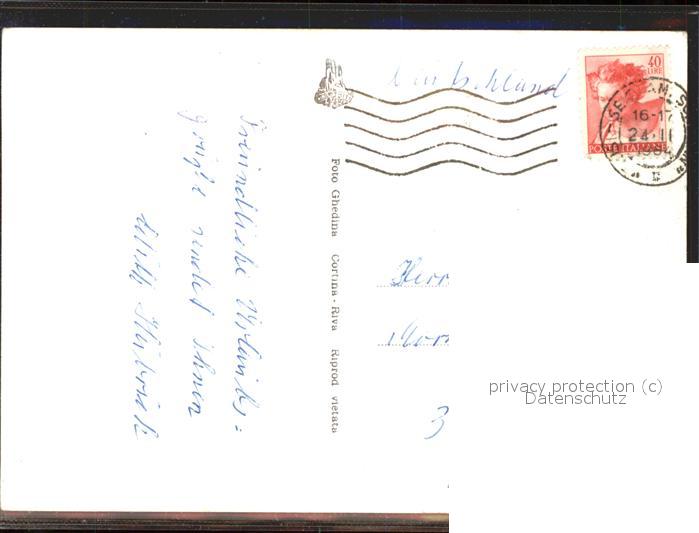 Deutschland
40
LIRE
POSTE ITALIANE
16-17
24·II
Foto Ghedina Cortina - Riva Riprod vietata
Freundliche Urlaubs=
grüße sendet Ihnen
Herr
3
privacy protection (c)
Datenschutz